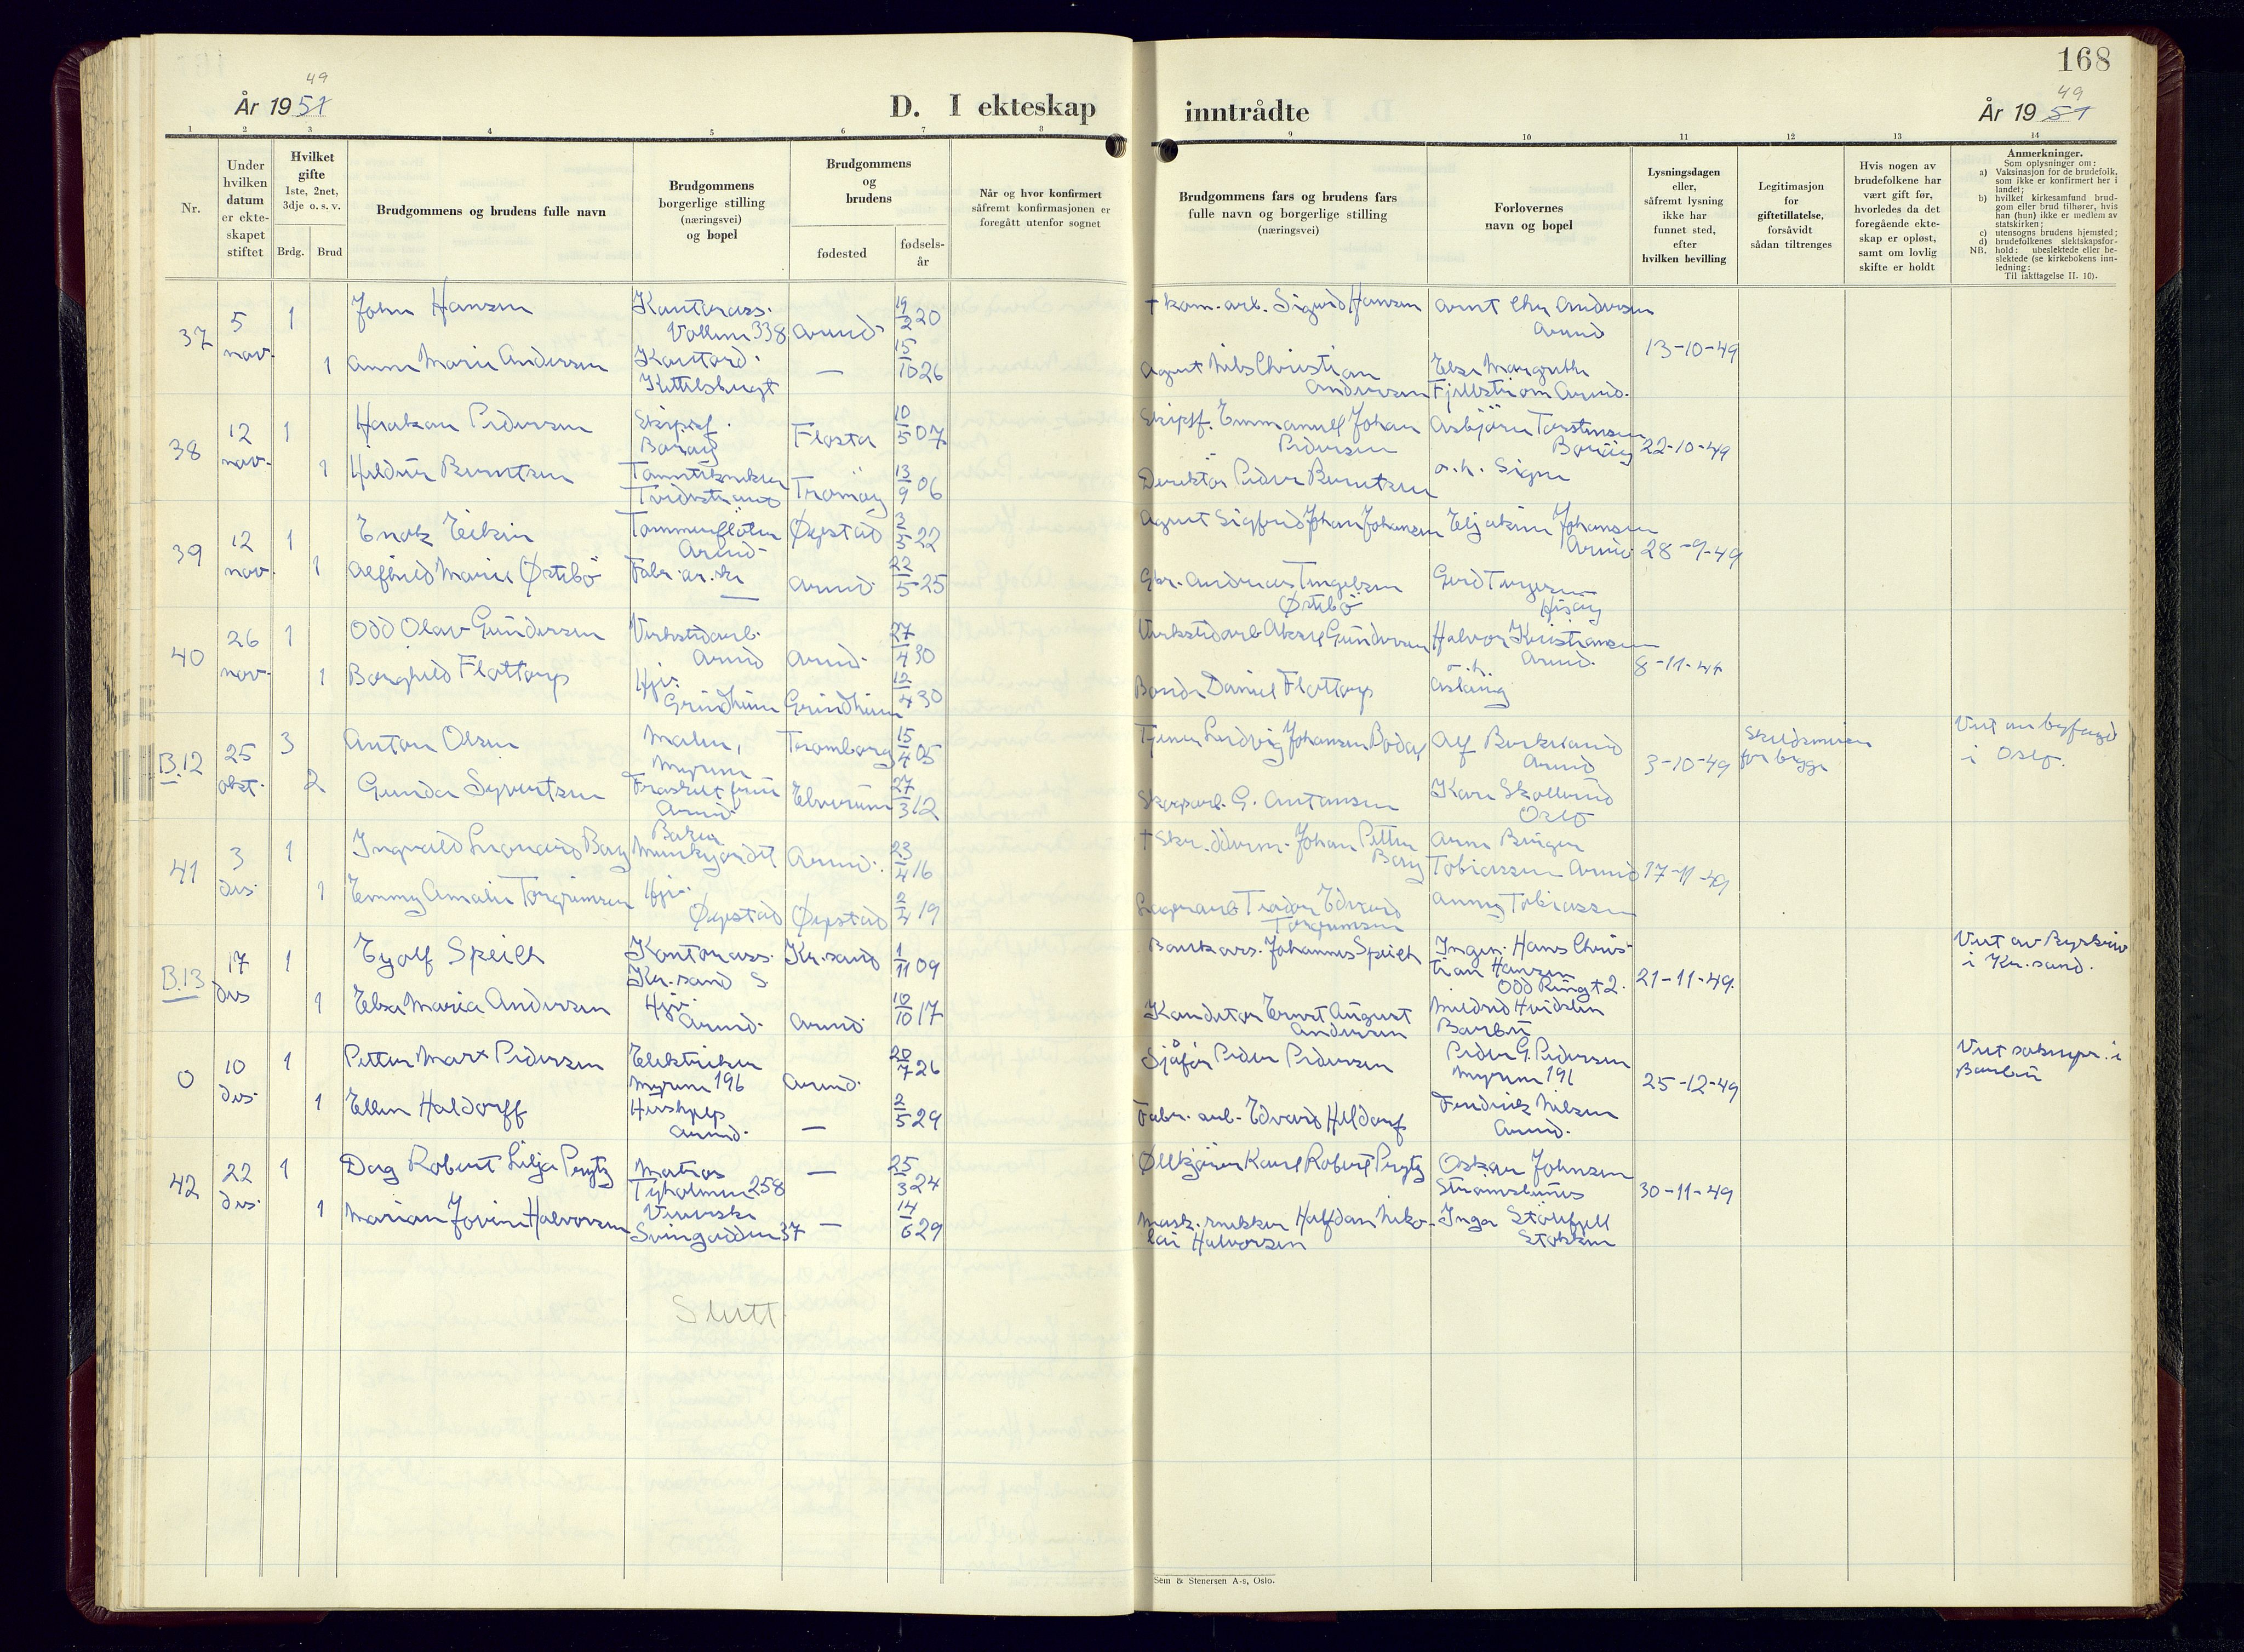 168
49
År 19 51
D. I ekteskap
inntrådte
49
År 19 51
1 2 3 4 5 6 7 8 9 10 11 12 13 14
Nr.
Under hvilken datum er ekteskapet stiftet
Hvilket gifte
1ste, 2net, 3dje o. s. v.
Brdg. Brud
Brudgommens og brudens fulle navn
Brudgommens borgerlige stilling (næringsvei) og bopel
Brudgommens og brudens
fødested
fødselsår
Når og hvor konfirmert såfremt konfirmasjonen er foregått utenfor sognet
Brudgommens fars og brudens fars fulle navn og borgerlige stilling (næringsvei)
Forlovernes navn og bopel
Lysningsdagen eller, såfremt lysning ikke har funnet sted, efter hvilken bevilling
Legitimasjon for giftetillatelse, forsåvidt sådan tiltrenges
Hvis nogen av brudefolkene har vært gift før, hvorledes da det foregående ekteskap er opløst, samt om lovlig skifte er holdt
Anmerkninger.
Som oplysninger om:
a) Vaksinasjon for de brudefolk, som ikke er konfirmert her i landet;
b) hvilket kirkesamfund brudgom eller brud tilhører, hvis han (hun) ikke er medlem av statskirken;
c) utensogns brudens hjemsted;
d) brudefolkenes slektskapsforhold: ubeslektede eller beslektede (se kirkebokens innledning:
NB.
Til iakttagelse II. 10).
37 5 nov. 1 John Hansen Kontorass. Vollene 338 Arend. 19/2 20 † kom. arb. Sigurd Hansen Arnt Chr Andersen Arend 13-10-49
1 Anne Marie Andersen Kontord. Kittelsbugt — 15/10 26 Agent Nils Christian Andersen Else Margrethe Fjellstrøm Arend.
38 12 nov. 1 Haakon Pedersen Skipsf. Borøy Flosta 10/5 07 Skipsf. Emmanuell Johan Pedersen Asbjörn Torstensen Borøy 22-10-49
1 Hildur Berntsen Tanntekniker Tvedestrand Tromøy 13/9 06 Direktör Peder Berntsen o.h. Signe
39 12 nov. 1 Enok Eikin Tømmerfløter Arend. Øyestad 3/5 22 Agent Sigfred Johan Johansen Eljakim Johansen Arend 28-9-49
1 Alfhild Marie Østebö Fabr. ar. ske — Arend. 22/5 25 Gbr. Andreas Tengelsen Østebö Gerd Torgersen Hisøy
40 26 nov. 1 Odd Olav Gundersen Verkstedarb. Arend Arend. 27/4 30 Verkstedarb Aksel Gundersen Halvor Kristiansen Arend. 8-11-49
1 Borghild Flottorp Hjv. Grindheim Grindheim 12/4 30 Bonde Daniel Flottorp o.h. Aslaug
B.12 25 okt. 3 Anton Olsen Maler, Myrene Tromborg 15/4 05 Tjener Ludvig Johansen Alf Birkeland Arend 3-10-49 Skilsmissen for begge Viet av byfogd i Oslo.
2 Gunda Syvertsen Fraskilt frue Arend. Elverum 27/3 12 G. Antonsen Kari Skollerud Oslo
41 3 des. 1 Ingvald Leonard Berg Baker Munkejordet Arend. 23/4 16 † Skr.ddrm. Johan Petter Berg Arne Birger Tobiassen Arend 17-11-49
1 Emmy Amalie Torgrimsen Hjv. Øyestad Øyestad 2/4 19 Lagerarb Teodor Edvard Torgrimsen Anny Tobiassen
B.13 17 des 1 Eyolf Speilt Kontorass. Kr.sand S Kr.sand 1/11 09 Bankass. Johannes Speilt Ingen. Hans Christian Hansen Odd Ringt 2. 21-11-49. Viet av Byskriv i Kr. sand.
1 Else Maria Andersen Hjv. Arend. Arend 10/10 17 Konditor Ernst August Andersen Mildrid Hvidsten Barbu
0 10 des. 1 Petter Marx Pedersen Elektriker Myrene 196 Arend. 20/7 26 Sjåfør Peder Pedersen Peder G. Pedersen Myrene 191 25-12-49 Viet soknepr. i Barbu
1 Ellen Haldorff Hushjelp Arend. — 2/5 29 Fabr. arb. Edvard Haldorf Fredrik Nilsen Arend.
42 22 des. 1 Dag Robert Lilja Prytz Matros Tyholmen 258 — 25/3 24 Øllkjører Karl Robert Prytz Oskar Johnsen Strømsbunes 30-11-49
1 Marian Jovine Halvorsen Veverske Svingodden 37 — 14/6 29 Mask. snekker Halfdan Nikolai Halvorsen Inga Stöllefjell Stokken
Slutt.
Sem & Stenersen A-s, Oslo.